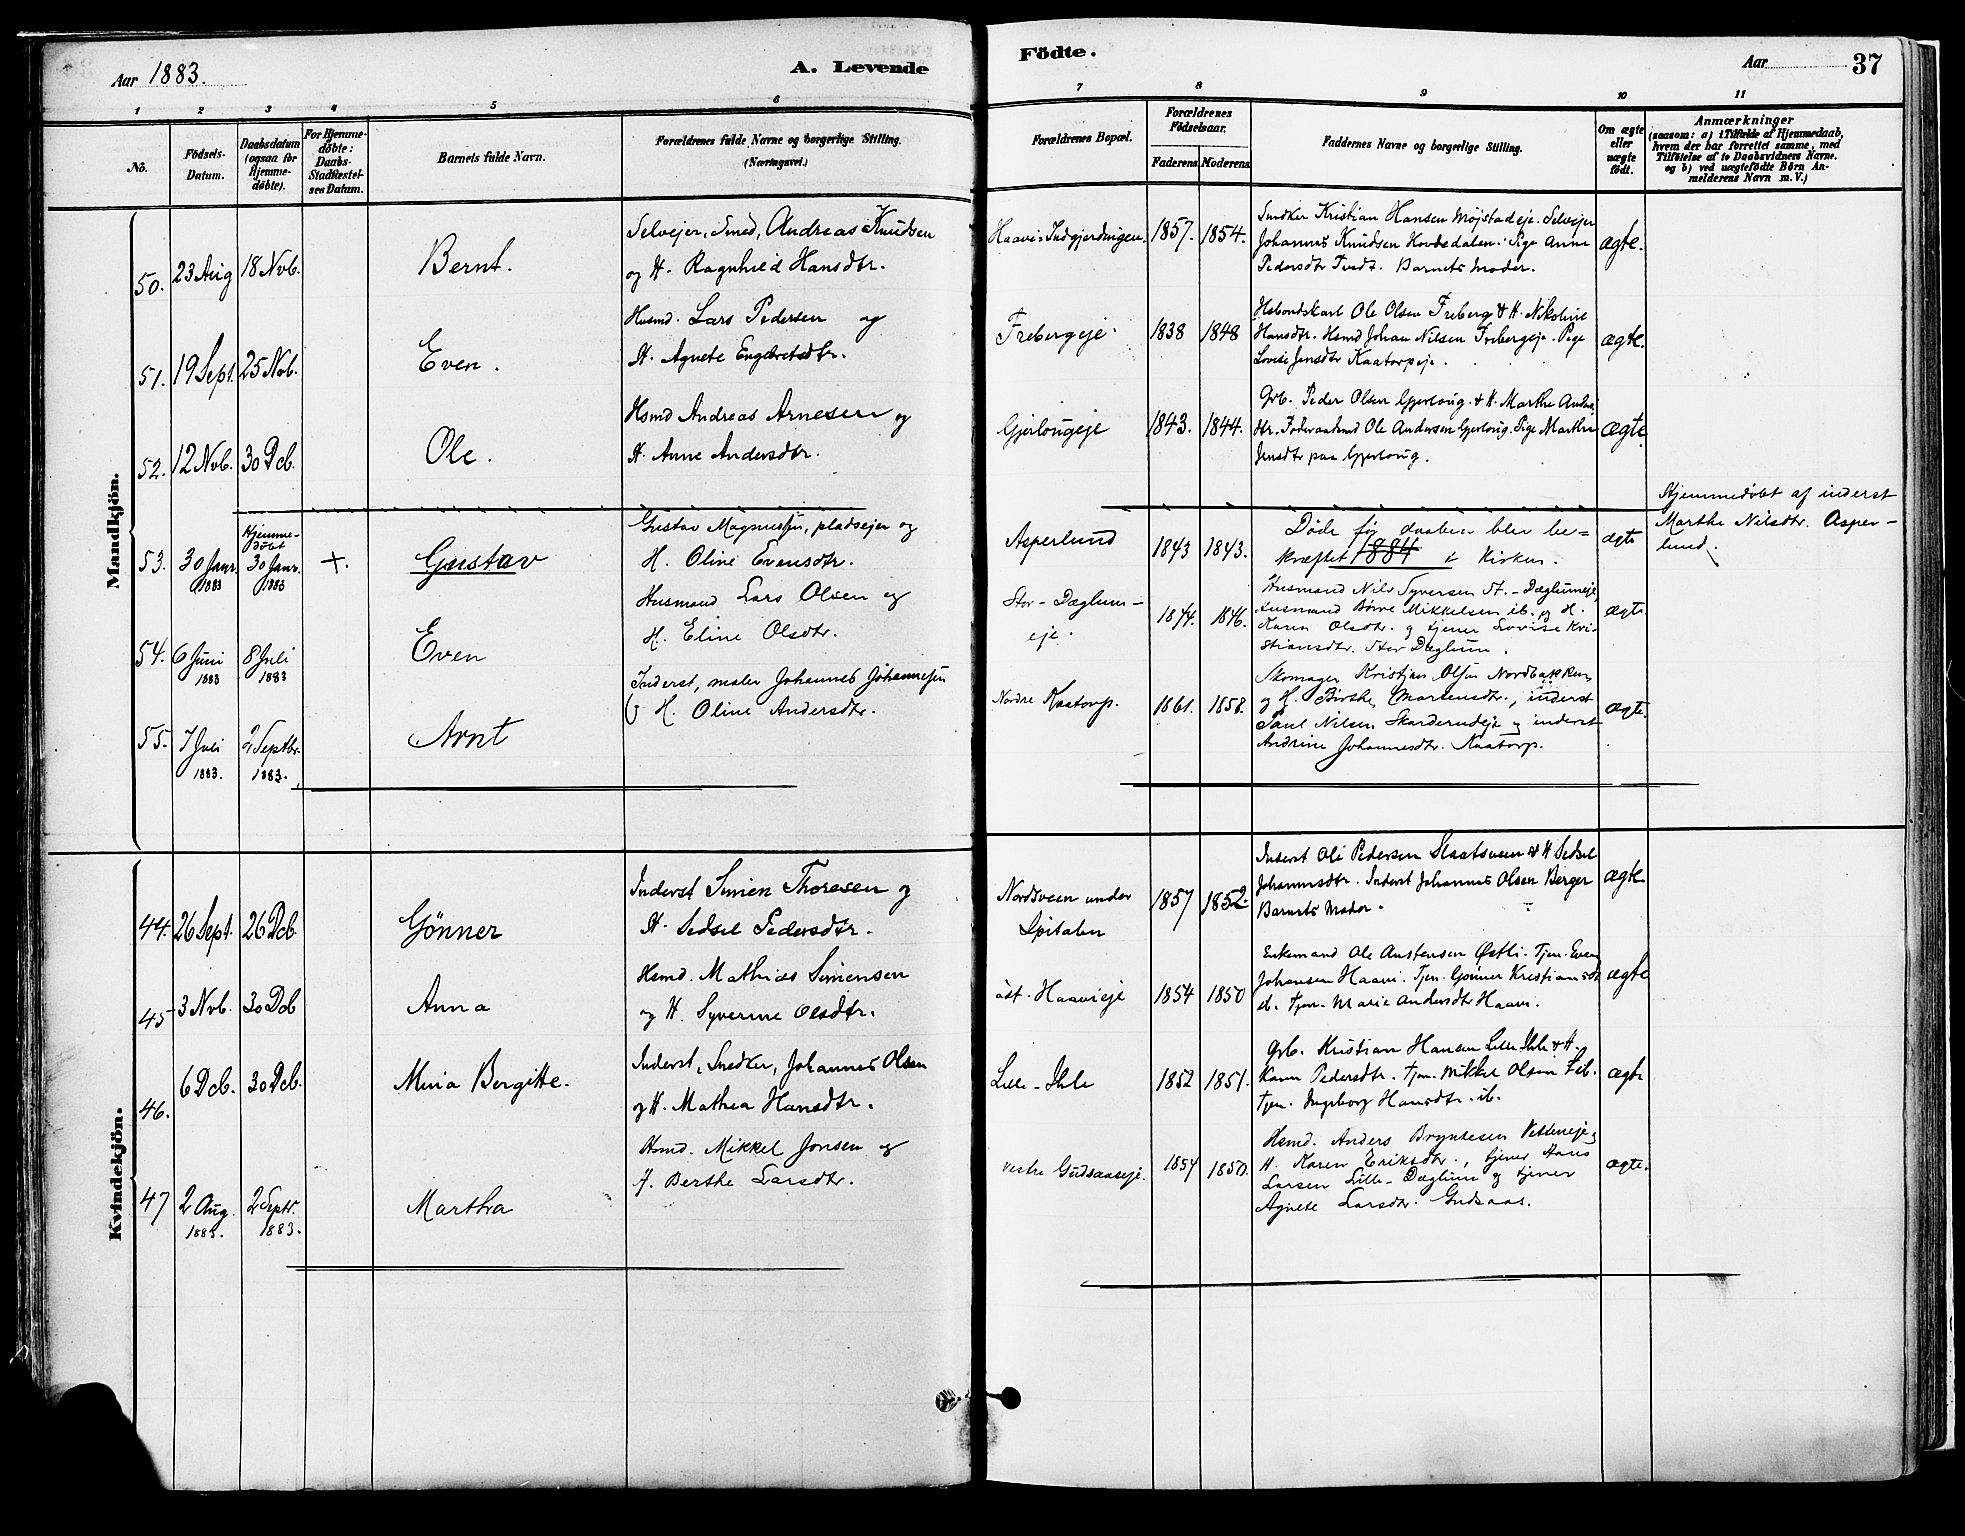 Aar 1883.
A. Levende
Födte.
Aar
37
1 2 3 4 5 6 7 8 9 10 11
No.
Födsels-Datum.
Daabsdatum (ogsaa for Hjemmedöbte).
For Hjemmedöbte: Daabs-Stadfæstelses Datum.
Barnets fulde Navn.
Forældrenes fulde Navne og borgerlige Stilling. (Næringsvei.)
Forældrenes Bopæl.
Forældrenes Födselsaar.
Faderens. Moderens.
Faddernes Navne og borgerlige Stilling.
Om ægte eller uægte födt.
Anmærkninger
(saasom: a) i Tilfælde af Hjemmedaab, hvem der har forrettet samme, med Tilföielse af to Daabsvidners Navne, og b) ved uægtefödte Börn Anmelderens Navn m. V.)
Mandkjön.
50. 23 Aug 18 Nvb. Bernt.
Selveier, Smed, Andreas Knudsen
og H. Ragnhild Hansdtr.
Haavi-Indgjerdingen. 1857. 1854.
Snedker Kristian Hansen Mojstadeje. Selvejer
Johannes Knudsen Hovdedalen. Pige Anne
Pedersdtr Tvedt. Barnets Moder.
ægte.
51. 19 Sept. 25 Nvb. Even.
Husmd. Lars Pedersen og
H. Agnete Engebretsdtr.
Frebergeje. 1838 1848
Ole Olsen Freberg & H. Nikoline
Hansdtr. Hsmd Johan Nilsen Frebergeje. Pige
Lovise Jensdtr Kaatorpeje.
ægte.
52. 12 Nvb. 30 Dcb. Ole.
Hsmd Andreas Arnesen og
H. Anne Andersdtr.
Gjerlougeje 1843. 1844.
Grb. Peder Olsen Gjerloug. & H. Marthe Anders
dtr. Föderaadsmd Ole Andersen Gjerloug. Pige Marthe
Jensdtr paa Gjerloug.
ægte
53. 30 Janr. 1883 Hjemmedöbt 30 Janr. 1883 +. Gustav
Gustav Magnussen, pladsejer og
H. Oline Evensdtr.
Asperlund 1843 1843.
Döde før daaben blev be=
kræftet i Kirken.
1884
ægte
Hjemmedöbt af inderst
Marthe Nilsdtr. Asper-
lund.
54. 6 Juni 1883 8 Juli 1883 Even
Husmand Lars Olsen og
H. Eline Olsdtr.
Stor-Dæglum-
eje. 1874. 1846.
Husmand Nils Syversen St.-Dæglumeje,
Husmand Börre Mikkelsen ib. og H.
Karen Olsdtr. og tjener Lovise Kri-
stiansdtr. Stor Dæglum.
ægte
55. 7 Juli 1883. 2 Septbr. 1883. Arnt
Inderst, maler Johannes Johannessen
og H. Oline Andersdtr.
Nordre Kaatorp. 1861. 1858.
Skomager Kristian Olsen Nordbakken
og H. Birthe Martensdtr., inderst
Paul Nilsen Skarderudeje og inderst
Andrine Johannesdtr. Kaatorp.
ægte.
Kvindekjön.
44. 26 Sept. 26 Dcb. Gönner
Inderst Simen Thoresen og
H. Sedsel Pedersdtr.
Nordsveen under
Spitalen 1857 1852.
Inderst Ole Pedersen Slaatsveen & H Sedsel
Johannesdtr. Inderst Johannes Olsen Berger
Barnets Moder.
ægte
45 3 Nvb. 30 Dcb Anna
Hsmd. Mathias Simensen
og H. Syverine Olsdtr.
öst. Haavieje 1854 1850
Enkemand Ole Austensen Østli. Tjen. Even
Johansen Haavi. Tjen. Gönner Kristiansdtr
ib. Tjen. Marie Andersdtr Haavi.
ægte
46. 6 Dcb. 30 Dcb. Mina Bergitte.
Inderst, Snedker, Johannes Olsen
og H. Mathea Hansdtr.
Lille-Ihle 1852 1851.
Grb. Kristian Hansen Lille Ihle & H.
Karen Pedersdtr. Tjen. Mikkel Olsen ib.
Tjen. Ingeborg Hansdtr. ib.
ægte
47 2 Aug. 1883. 2 Septr. 1883. Martha
Hsmd. Mikkel Jonsen og
H. Berthe Larsdtr.
vestre Gudsaaseje. 1854 1850.
Hsmd. Anders Bryntesen Vetteneje,
H. Karen Eriksdtr., tjener Hans
Larsen Lille-Dæglum og tjener
Agnete Larsdtr. Gudsaas.
ægte.